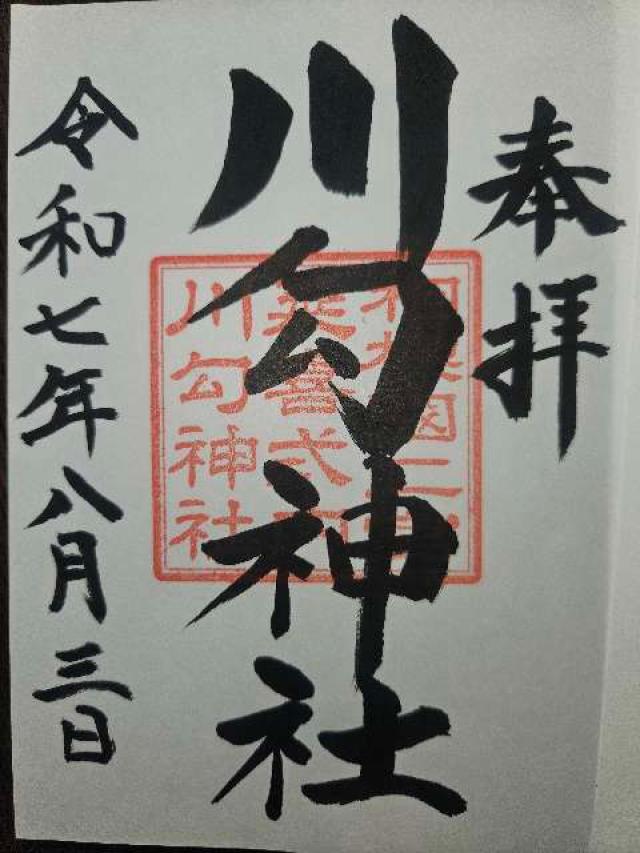 奉拝
川勾神社
相模國二宮
延喜式内
川勾神社
令和七年八月三日